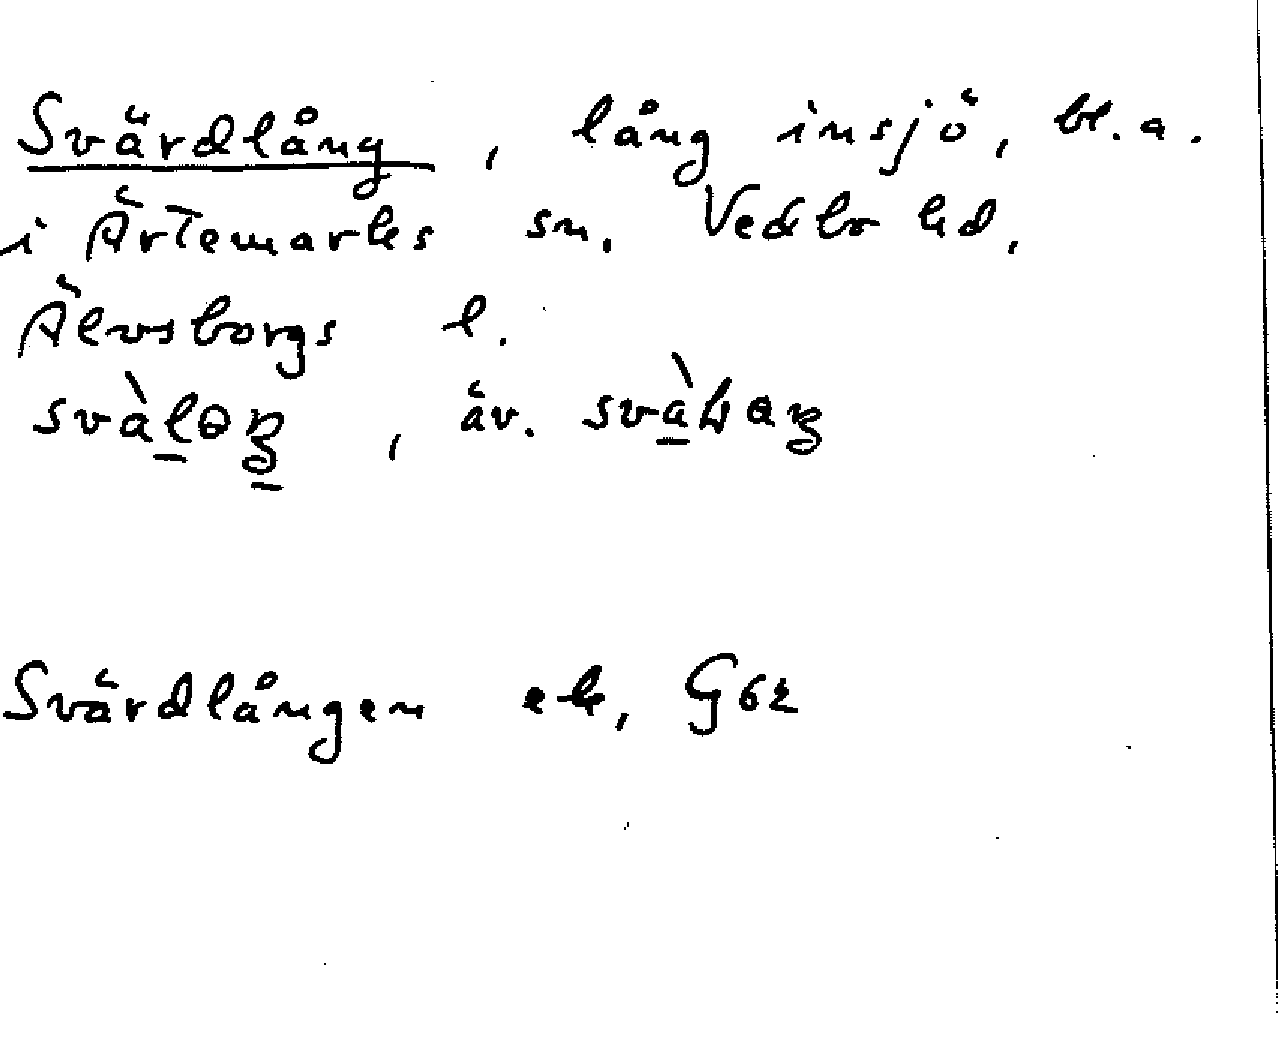 Svärdlång, lång insjö, bl.a.
i Ärtemarks sn. Vedbo hd.
Älvsborgs l.
, äv.
Svärdlången ek, G62